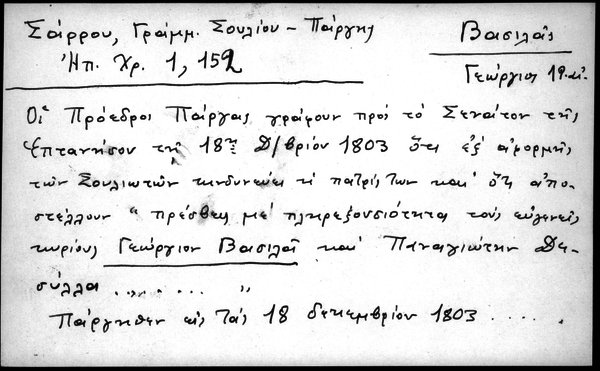 Σάρρου, Γραμμ. Σουλίου - Πάργης
Ἠπ. Χρ. 1, 152
Βασιλᾶς
Γεώργιος 19. αἰ.
Οἱ Πρόεδροι Πάργας γράφουν πρός τό Σενάτον τῆς
Ἑπτανήσου τῇ 18ῃ Δ/βρίου 1803 ὅτι ἐξ ἀφορμῆς
τῶν Σουλιωτῶν κινδυνεύει ἡ πατρίς των καί ὅτι ἀπο-
στέλλουν " πρέσβεις μέ πληρεξουσιότητα τούς εὐγενεῖς
κυρίους Γεώργιον Βασιλᾶ καί Παναγιώτην Δε-
σύλλα ....... "
Πάργηθεν εἰς τάς 18 δεκεμβρίου 1803 ......